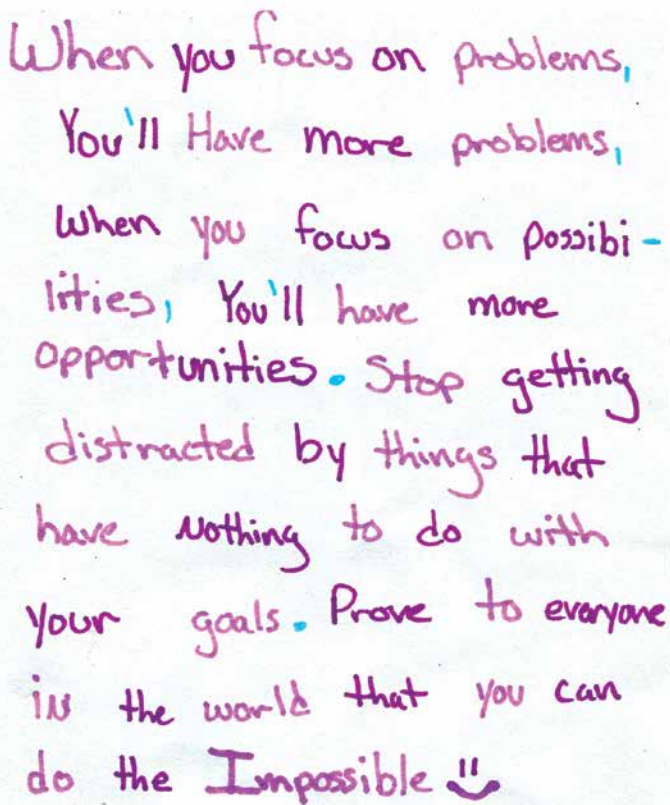 When you focus on problems,
You'll Have more problems,
When you focus on possibi-
lities, You'll have more
opportunities. Stop getting
distracted by things that
have Nothing to do with
your goals. Prove to everyone
in the world that you can
do the Impossible